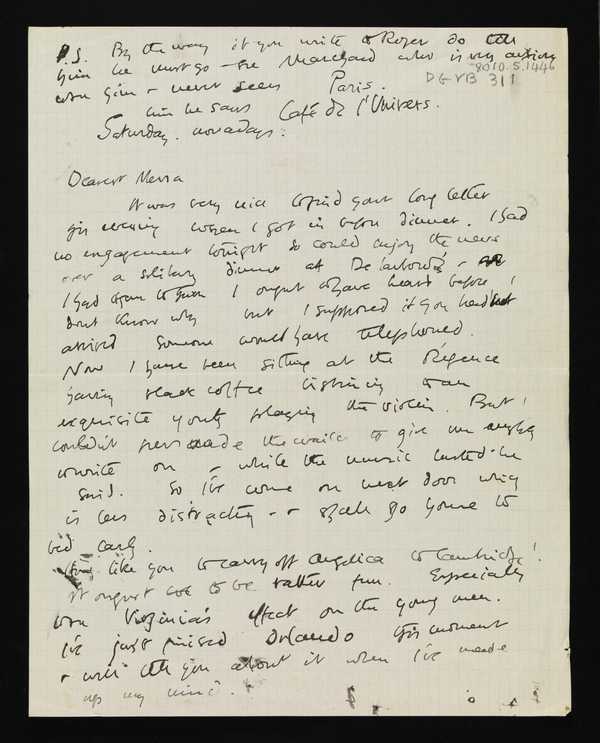 P.S. By the way if you write to Roger do tell
him he must go to see Marchand who is very anxious
8010.5.1446
about him & never sees Paris.
DG VB 311
him he says Café de l'Univers.
Saturday nowadays.
Dearest Nessa
It was very nice to find your long letter
this evening when I got in before dinner. I had
no engagement tonight so could enjoy the news
over a solitary dinner at De
I had begun to think I ought to have heard before I
dont know why but I supposed if you hadnt
arrived someone would have telephoned.
Now I have been sitting at the Régence
having black coffee listening to an
exquisite youth playing the violin. But I
couldn't persuade the waiter to give me anything
to write on - while the music lasted he
said. So I've come on next door which
is less distracting - & shall go home to
bed early.
like you to carry off Angelica to Cambridge!
It ought to be rather fun. Especially
Virginia's effect on the young men.
I've just finished Orlando this moment
& will tell you about it when I've made
up my mind.